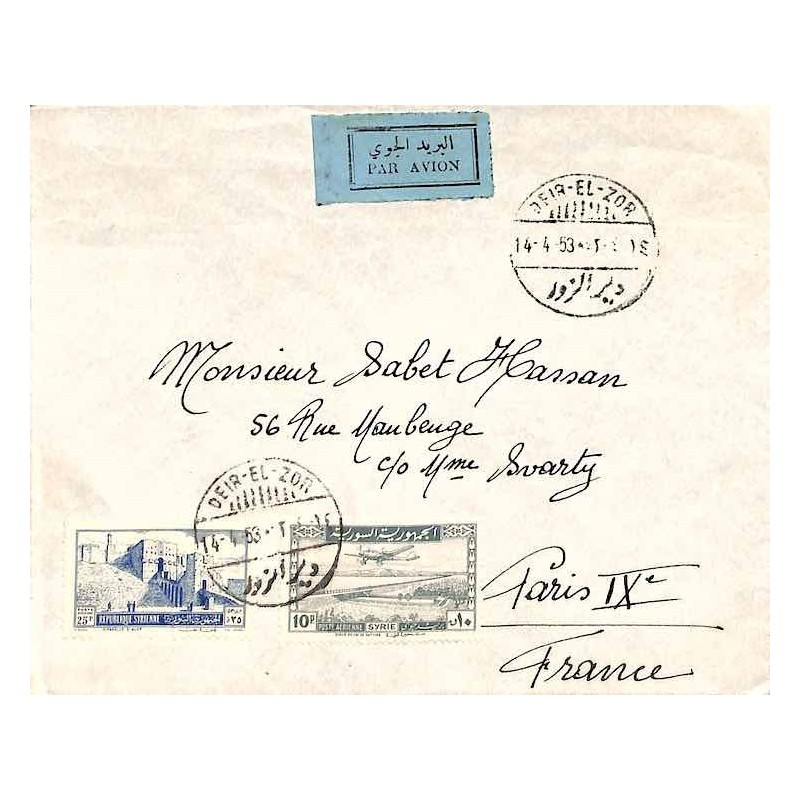 البريد الجوي
PAR AVION
DEIR-EL-ZOR
14-4-53
دير الزور
Monsieur Sabet Hassan
56 Rue Maubeuge
c/o Mme Svarty
Paris IXe
France
DEIR-EL-ZOR
14-4-53
دير الزور
25P
٢٥
REPUBLIQUE SYRIENNE
الجمهورية السورية
الجمهورية السورية
10P
POSTE AERIENNE SYRIE
١٠